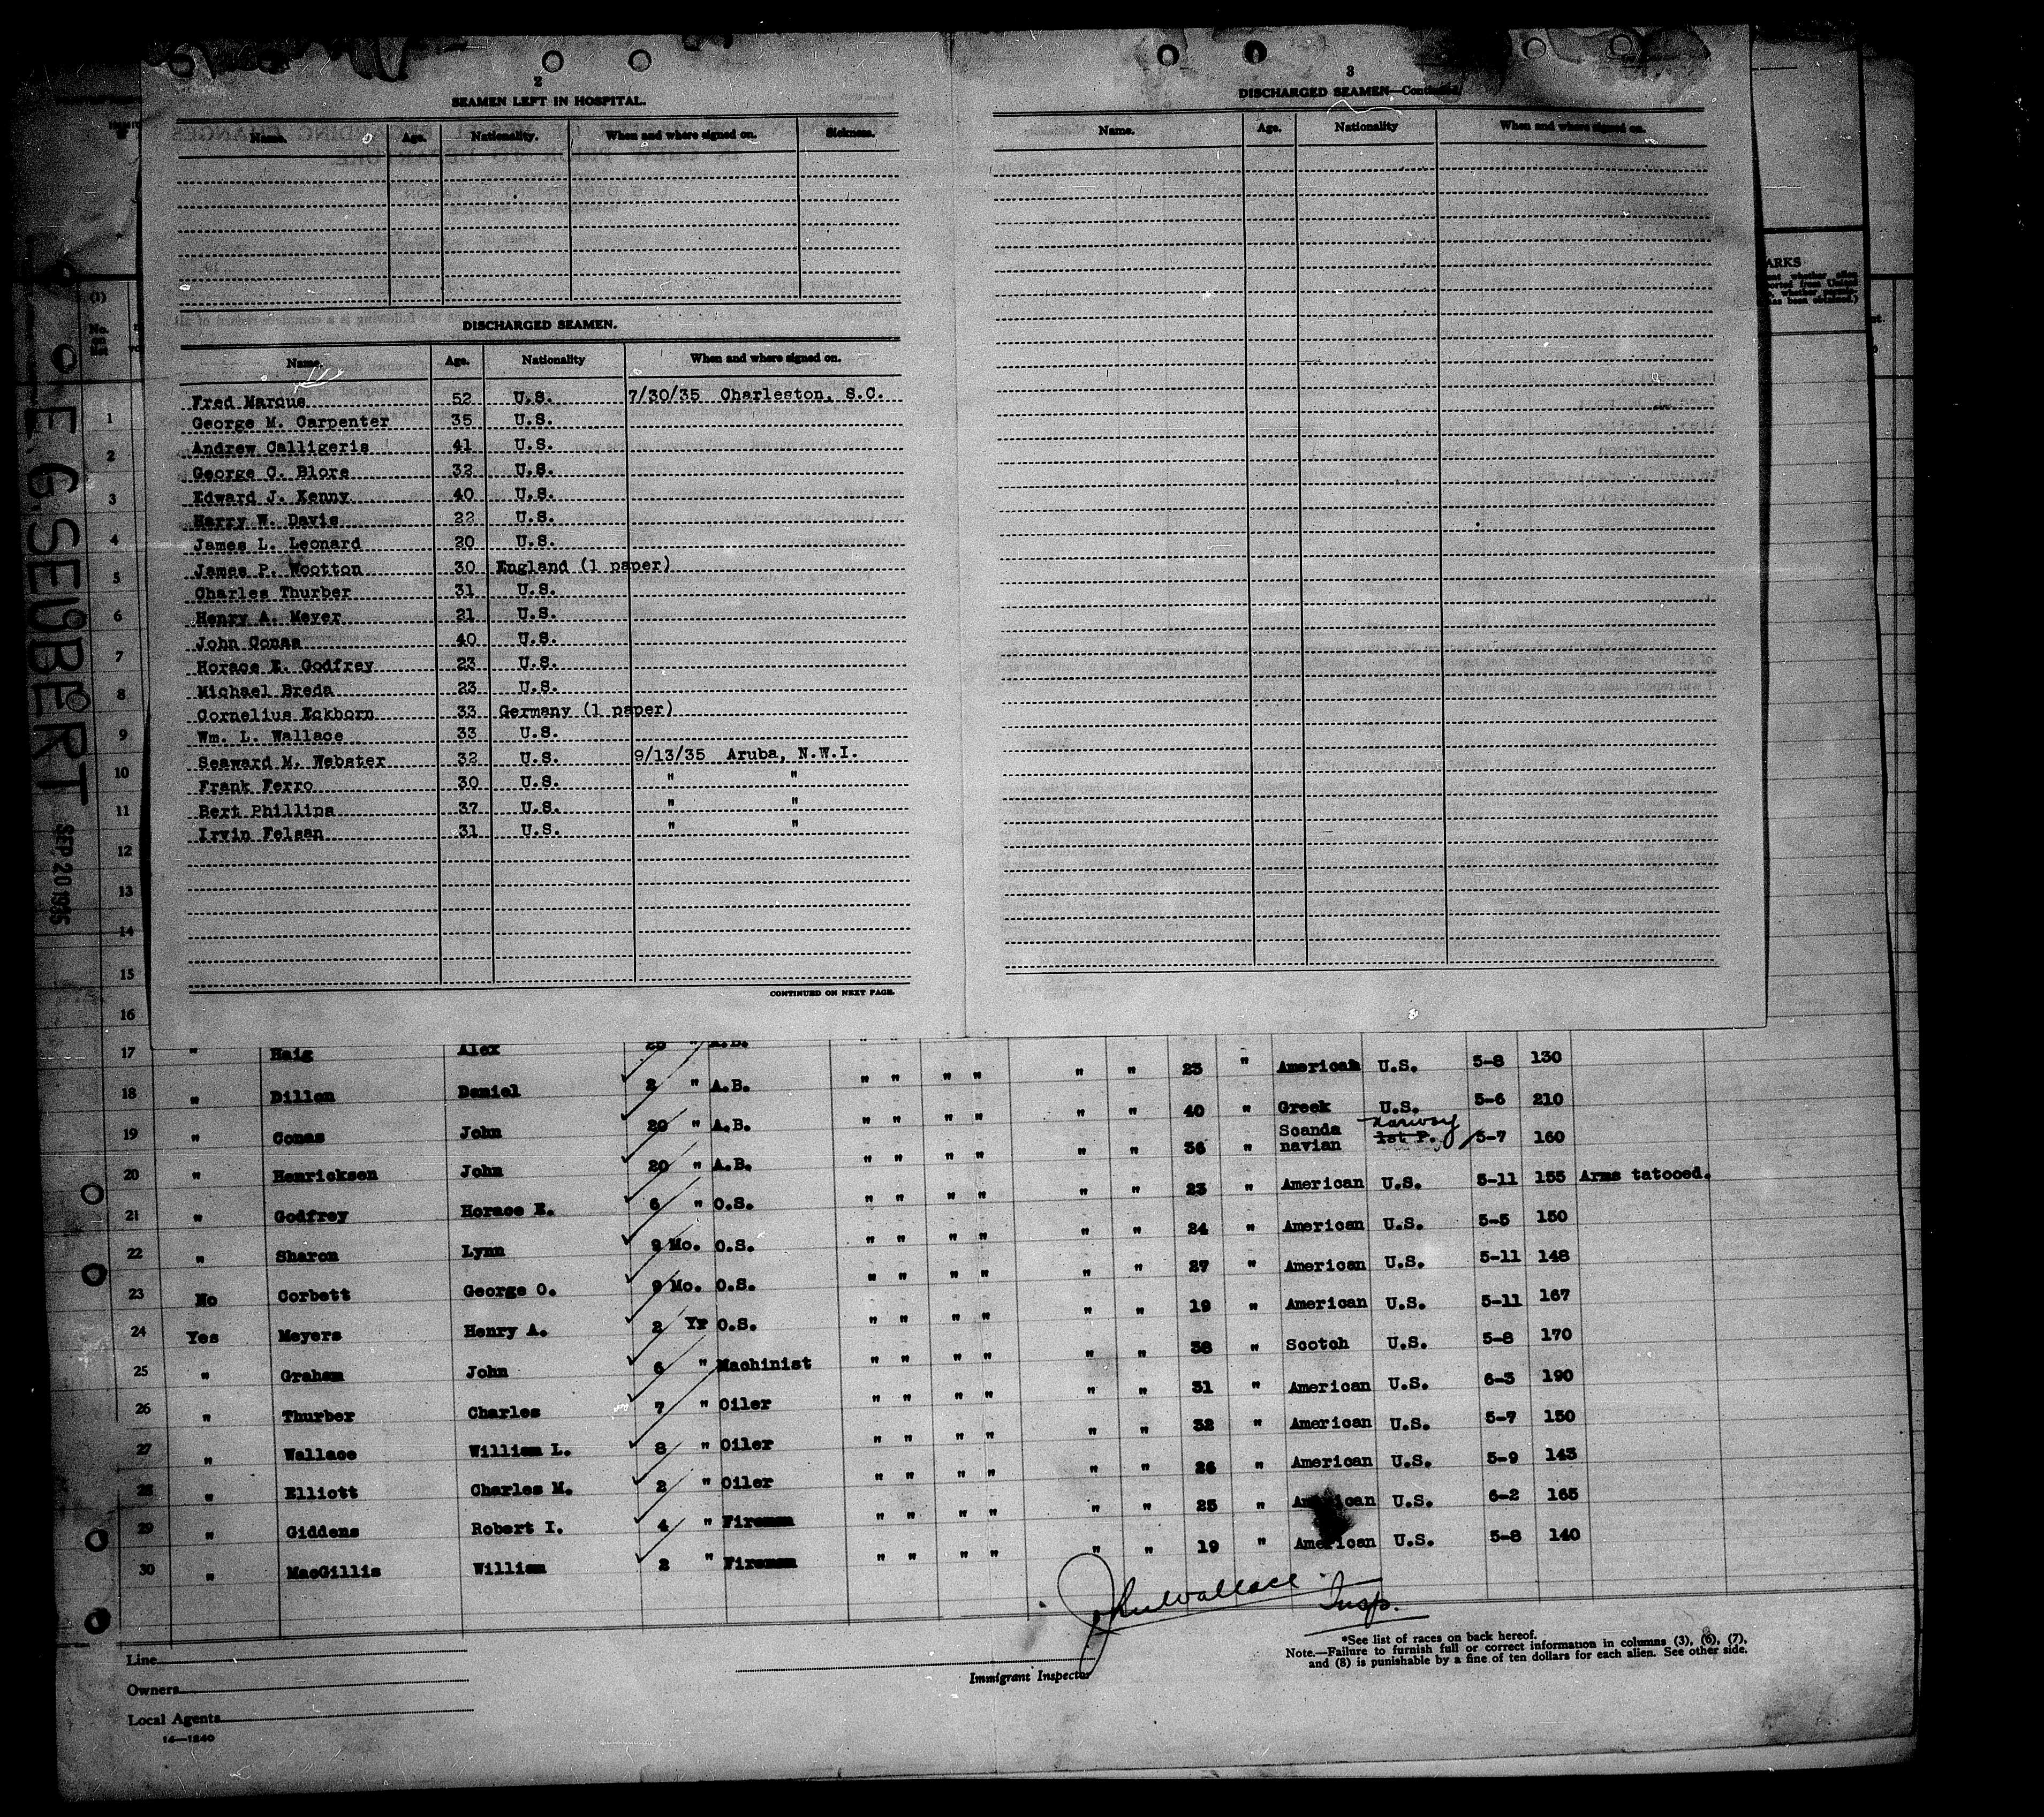 2
SEAMEN LEFT IN HOSPITAL.
Name. Age. Nationality. When and where signed on. Sickness.
DISCHARGED SEAMEN.
Name. Age. Nationality When and where signed on.
Fred Marcus 52 U.S. 7/30/35 Charleston, S.C.
George M. Carpenter 35 U.S.
Andrew Calligeris 41 U.S.
George C. Blore 32 U.S.
Edward J. Kenny 40 U.S.
Harry W. Davis 22 U.S.
James L. Leonard 20 U.S.
James P. Wootton 30 England (1 paper)
Charles Thurber 31 U.S.
Henry A. Meyer 21 U.S.
John Conas 40 U.S.
Horace E. Godfrey 23 U.S.
Michael Breda 23 U.S.
Cornelius Eckhorn 33 Germany (1 paper)
Wm. L. Wallace 33 U.S.
Seaward M. Webster 32 U.S. 9/13/35 Aruba, N.W.I.
Frank Ferro 30 U.S. " "
Bert Phillips 37 U.S. " "
Irvin Felsan 31 U.S. " "
CONTINUED ON NEXT PAGE.
3
DISCHARGED SEAMEN—Continued
Name. Age. Nationality When and where signed on.
ARKS
E. G. SEUBERT SEP 20 1935
(1)
No.
on
list
1
2
3
4
5
6
7
8
9
10
11
12
13
14
15
16
17 " Haig Alex 25 " A.B. " " " "
18 " Dillon Daniel 2 " A.B. " " " " " " 23 " American U.S. 5-8 130
19 " Conas John 20 " A.B. " " " " " " 40 " Greek U.S. 5-6 210
20 " Henricksen John 20 " A.B. " " " " " " 36 " Scanda navian 1st P. Norway 5-7 160
21 " Godfrey Horace E. 6 " O.S. " " " " " " 23 " American U.S. 5-11 155 Arms tatooed.
22 " Sharon Lynn 9 Mo. O.S. " " " " " " 24 " American U.S. 5-5 150
23 No Corbett George O. 9 Mo. O.S. " " " " " " 27 " American U.S. 5-11 148
24 Yes Meyers Henry A. 2 Yr O.S. " " " " " " 19 " American U.S. 5-11 167
25 " Graham John 6 " Machinist " " " " " " 38 " Scotch U.S. 5-8 170
26 " Thurber Charles 7 " Oiler " " " " " " 31 " American U.S. 6-3 190
27 " Wallace William L. 8 " Oiler " " " " " " 32 " American U.S. 5-7 150
28 " Elliott Charles M. 2 " Oiler " " " " " " 26 " American U.S. 5-9 143
29 " Giddens Robert I. 4 " Fireman " " " " " " 25 " American U.S. 6-2 165
30 " MacGillis William 2 " Fireman " " " " " " 19 " American U.S. 5-8 140
John Wallace Insp.
Immigrant Inspector
Line
Owners
Local Agents
14—1240
*See list of races on back hereof.
Note.—Failure to furnish full or correct information in columns (3), (6), (7),
and (8) is punishable by a fine of ten dollars for each alien. See other side.